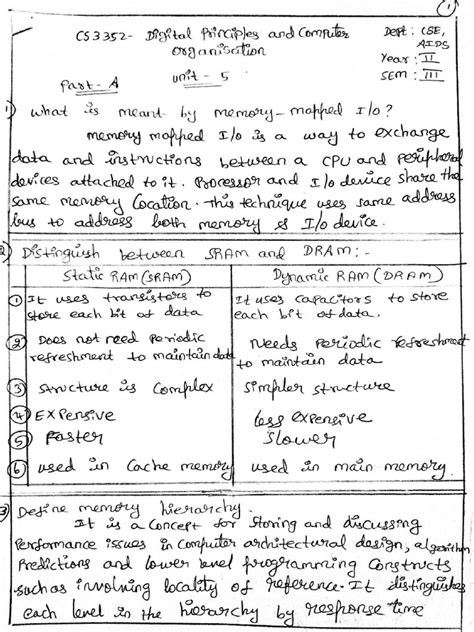 ①
CS3352- Digital Principles and Computer
Organisation
Dept: CSE,
AIDS
Year: II
SEM: III
Part-A
unit - 5
1) what is meant by memory-mapped I/o?
memory mapped I/o is a way to exchange
data and instructions between a CPU and Peripheral
devices attached to it. Processor and I/o device share the
same memory Location. This technique uses same address
bus to address both memory & I/o device.
2) Distinguish between SRAM and DRAM:-
Static RAM (SRAM)
Dynamic RAM (DRAM)
① It uses transistors to
store each bit of data
It uses capacitors to store
each bit of data.
② Does not need Periodic
refreshment to maintain data
Needs Periodic refreshment
to maintain data
③ Structure is Complex
Simpler structure
④ Expensive
less expensive
⑤ Faster
Slower
⑥ used in Cache memory
used in main memory.
3) Define memory hierarchy.
It is a Concept for Storing and discussing
Performance issues in Computer architectural design, algorithm
Predictions and lower level programming Constructs
such as involving locality of reference. It distinguishes
each level in the hierarchy by response time